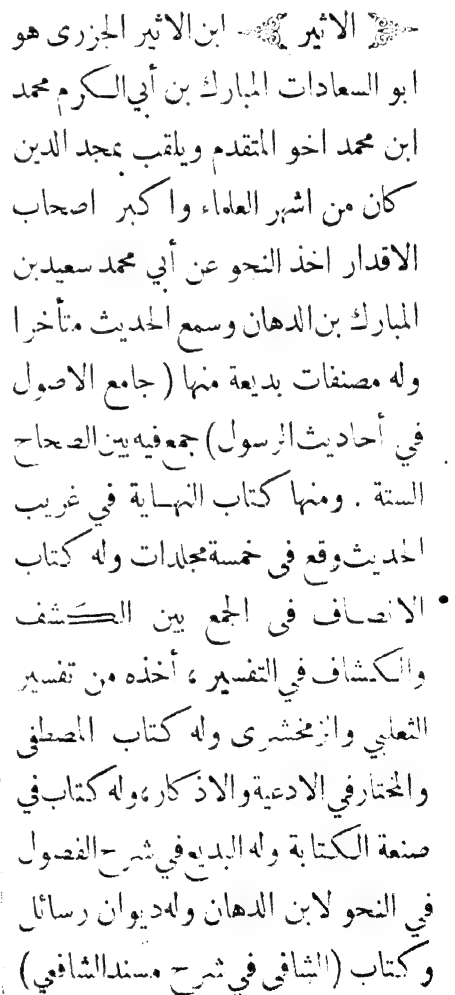 ﴿ الاثير ﴾ ابن الاثير الجزرى هو
ابو السعادات المبارك بن أبي الكرم محمد
ابن محمد اخو المتقدم ويلقب بمجد الدين
كان من اشهر العلماء واكبر اصحاب
الاقدار اخذ النحو عن أبي محمد سعيد بن
المبارك بن الدهان وسمع الحديث متأخرا
وله مصنفات بديعة منها ( جامع الاصول
في أحاديث الرسول ) جمع فيه بين الصحاح
الستة . ومنها كتاب النهاية في غريب
الحديث وقع فى خمسة مجلدات وله كتاب
الانصاف فى الجمع بين الكشف
والكشاف في التفسير ، أخذه من تفسير
الثعلبي والزمخشرى وله كتاب المصطفى
والمختار في الادعية والاذكار ، وله كتاب في
صنعة الكتابة وله البديع في شرح الفصول
في النحو لابن الدهان وله ديوان رسائل
وكتاب ( الشافى فى شرح مسند الشافعي )